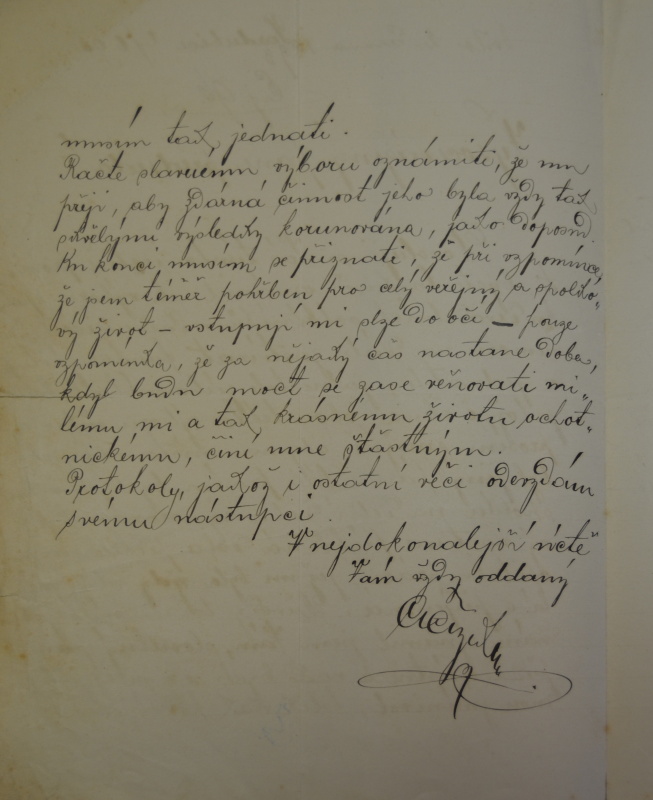 musím tak jednati.
Račte slavnému výboru oznámiti, že mu
přeji, aby zdárná činnost jeho byla vždy tak
skvělými výsledky korunována, jako doposud.
Ku konci musím se přiznati, že při vzpomínce,
že jsem téměř pohřben pro celý veřejný a spolko-
vý život – vstupují mi slze do očí – pouze
vzpomínka, že za nějaký čas nastane doba,
kdy budu moct se zase věnovati mi-
lému mi a tak krásnému životu ochot-
nickému, činí mne šťastným.
Protokoly, jakož i ostatní věci odevzdám
svému nástupci.
V nejdokonalejší úctě
Vám vždy oddaný